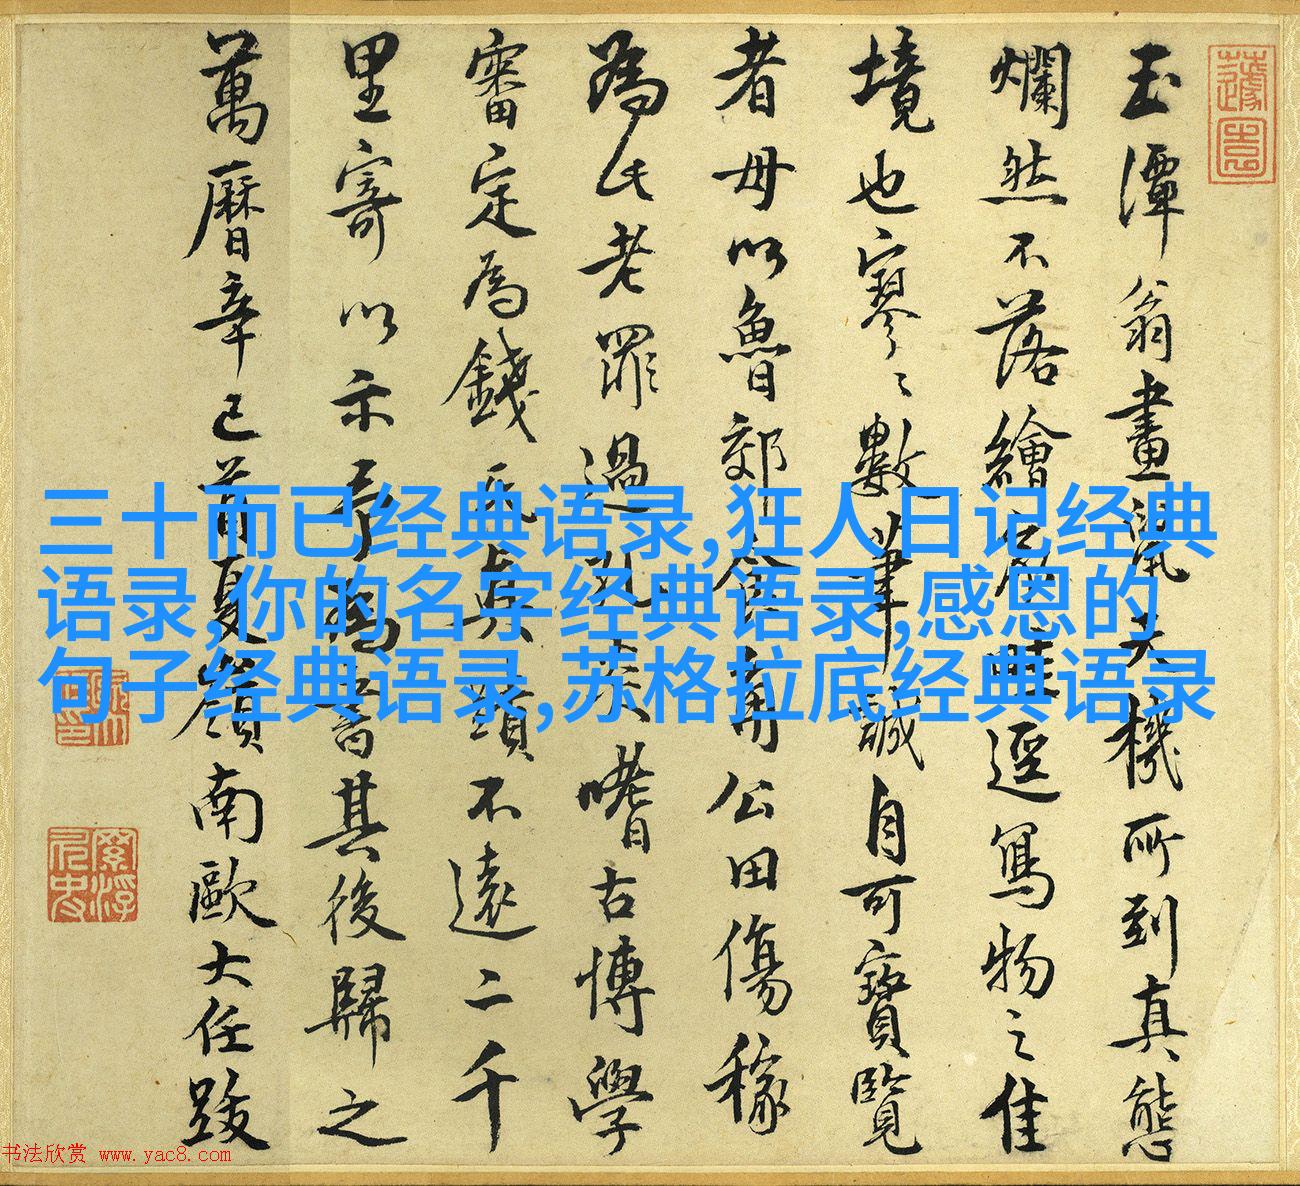 玉潭翁畫鼠天機所到真態
爛然不落繪家畦逕寫物之佳
境也寥〻數筆誠自可寶覽
者毋以魯郊食角公田傷稼
為氏老罪過
嗜古博學
審定為錢氏真蹟不遠二千
里寄以示
其後歸之
萬曆辛巳首夏嶺南歐大任跋
三十而已经典语录,狂人日记经典
语录,你的名字经典语录,感恩的
句子经典语录,苏格拉底经典语录
书法欣赏 www.yac8.com